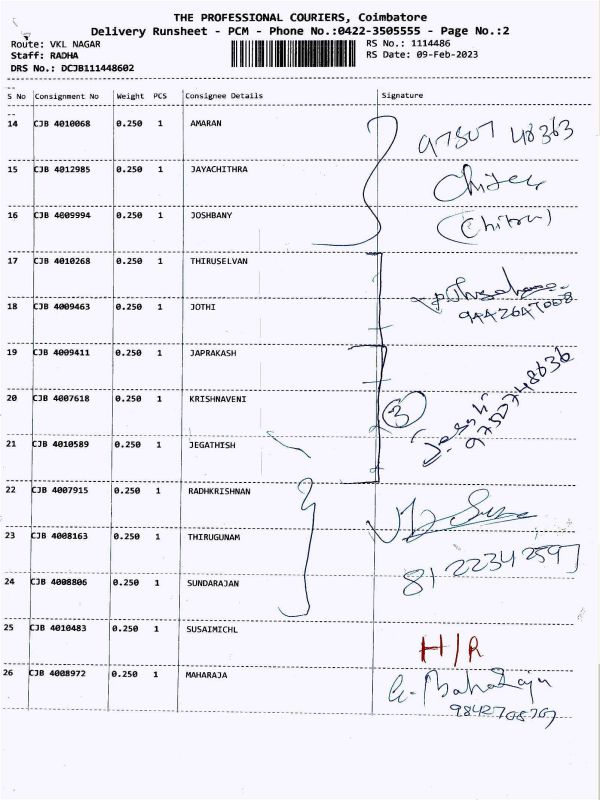 THE PROFESSIONAL COURIERS, Coimbatore
Delivery Runsheet - PCM - Phone No.:0422-3505555 - Page No.:2
Route: VKL NAGAR RS No.: 1114486
Staff: RADHA RS Date: 09-Feb-2023
DRS No.: DCJB111448602
S No Consignment No Weight PCS Consignee Details Signature
14 CJB 4010068 0.250 1 AMARAN
15 CJB 4012985 0.250 1 JAYACHITHRA
(Chitra)
16 CJB 4009994 0.250 1 JOSHBANY
17 CJB 4010268 0.250 1 THIRUSELVAN
18 CJB 4009463 0.250 1 JOTHI
19 CJB 4009411 0.250 1 JAPRAKASH
20 CJB 4007618 0.250 1 KRISHNAVENI
3
21 CJB 4010589 0.250 1 JEGATHISH
22 CJB 4007915 0.250 1 RADHKRISHNAN
23 CJB 4008163 0.250 1 THIRUGUNAM
24 CJB 4008806 0.250 1 SUNDARAJAN
25 CJB 4010483 0.250 1 SUSAIMICHL H/R
26 CJB 4008972 0.250 1 MAHARAJA